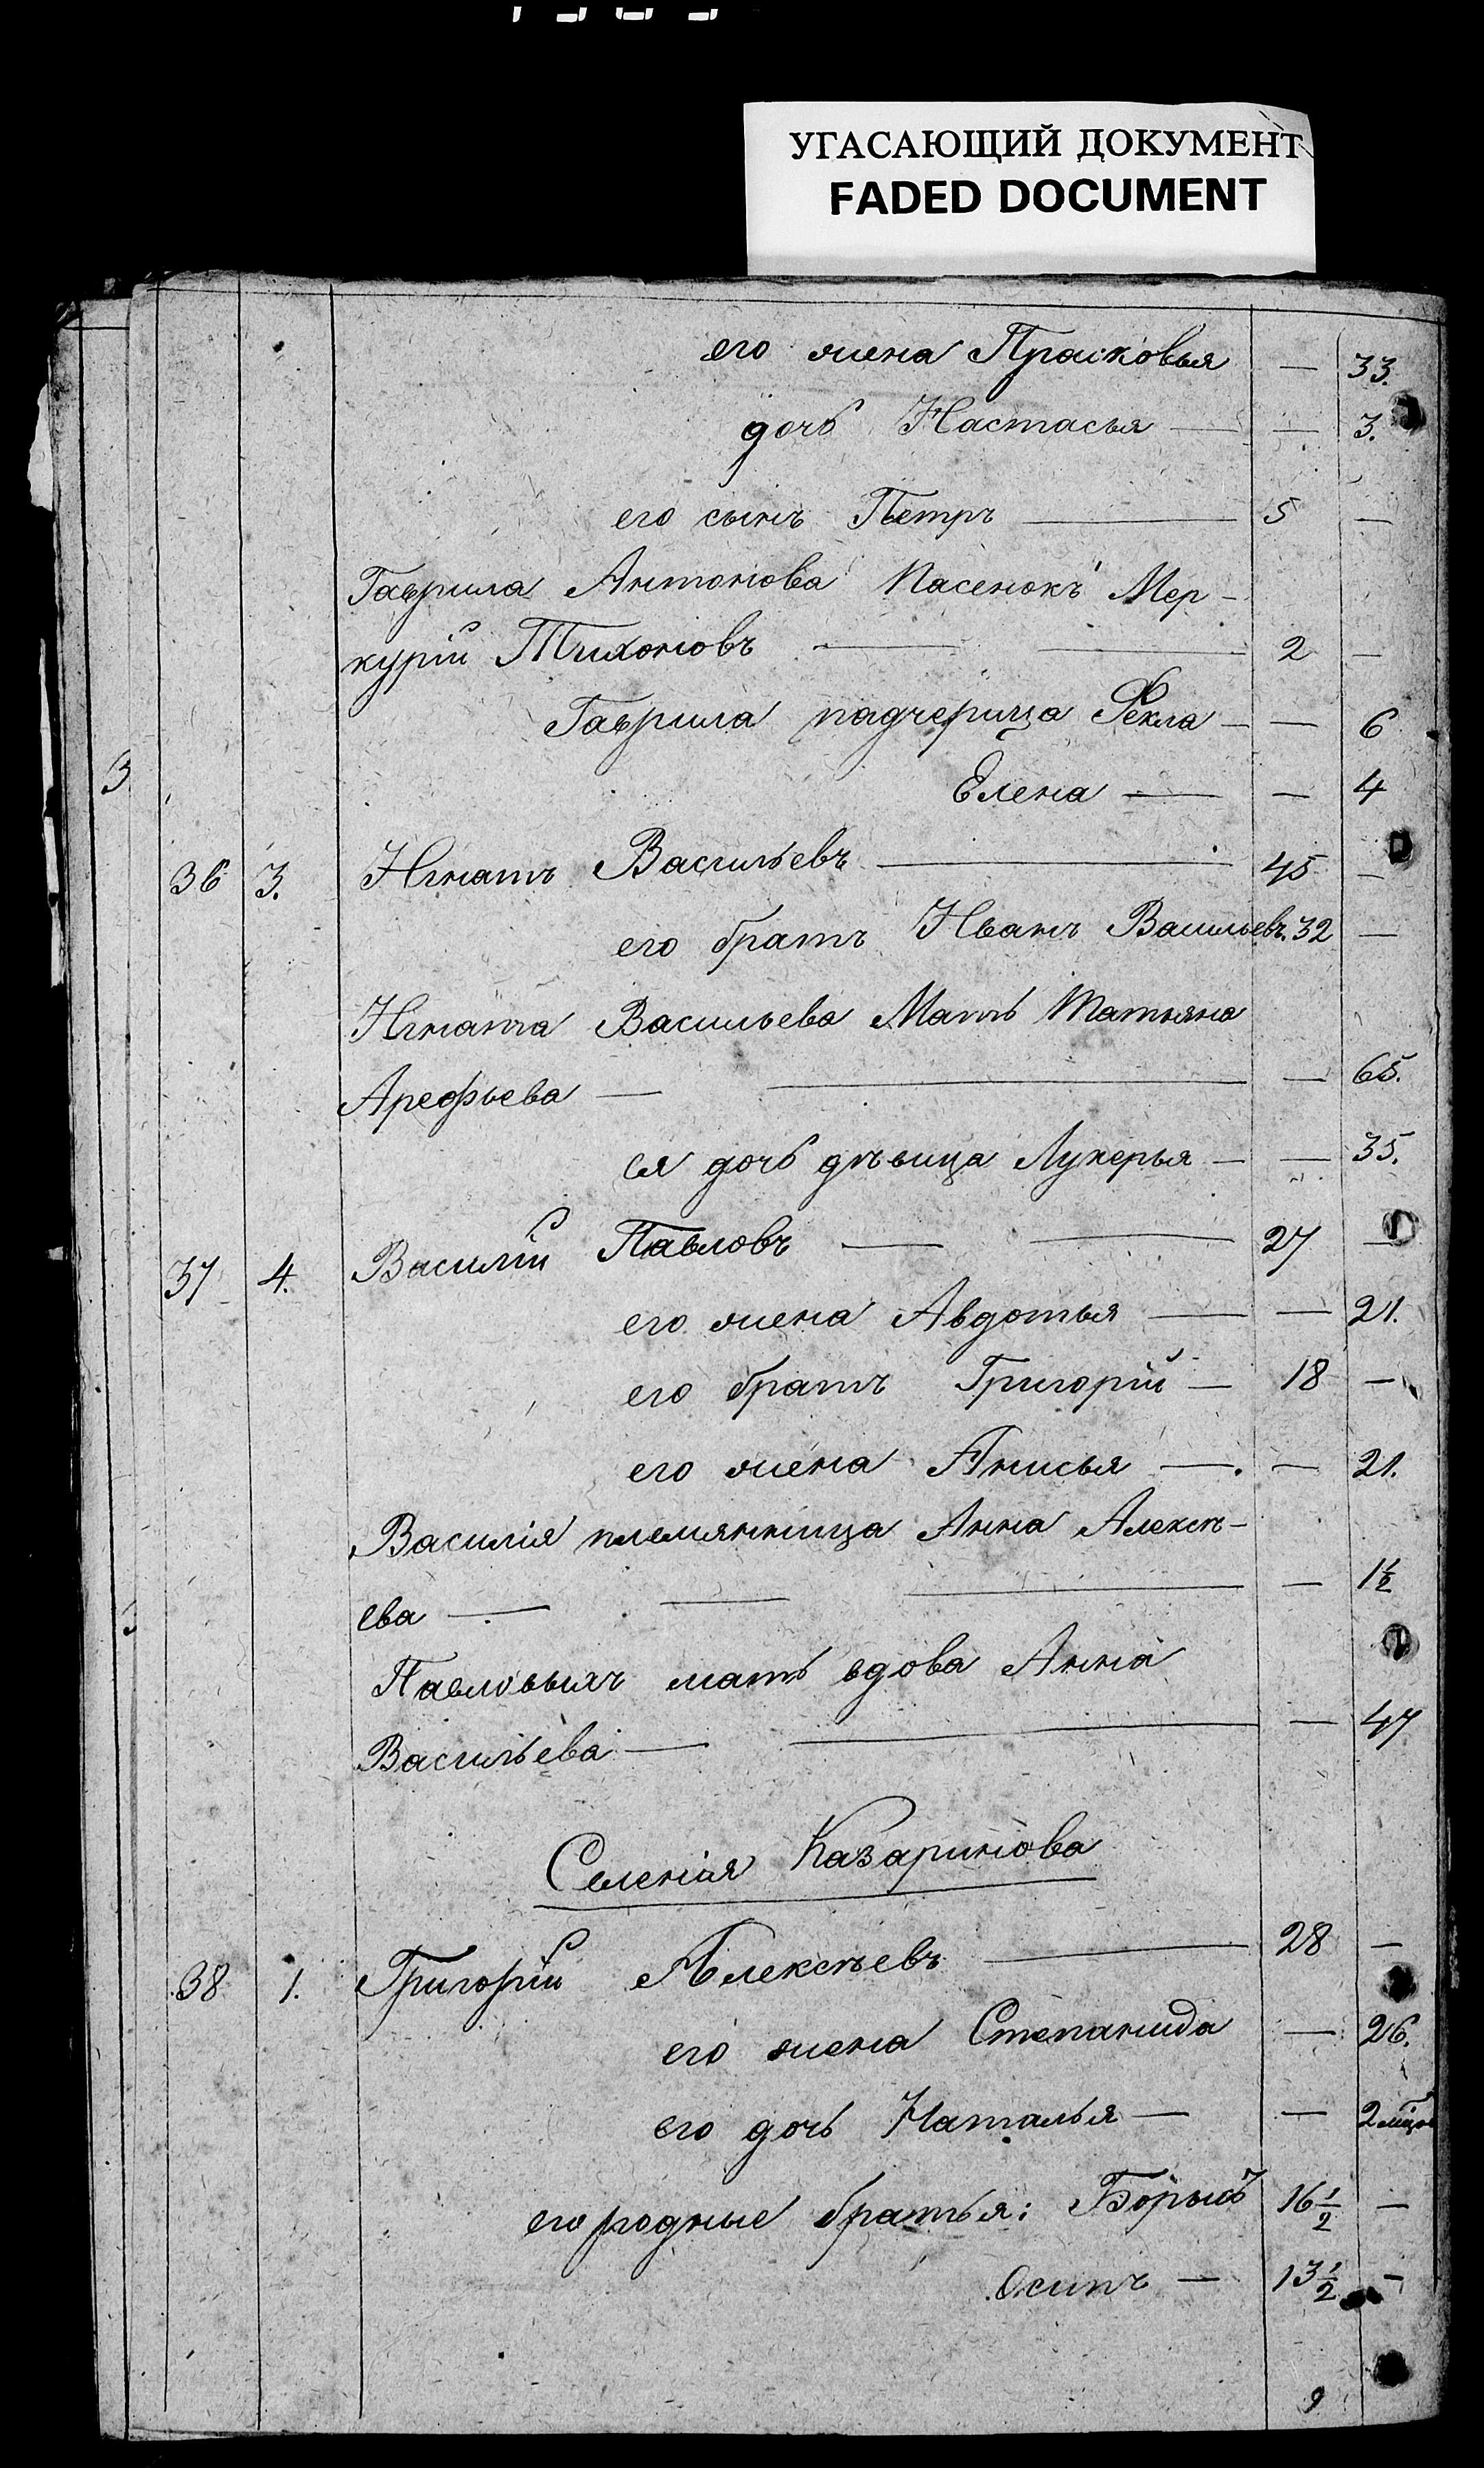 УГАСАЮЩИЙ ДОКУМЕНТ
FADED DOCUMENT
его жена Прасковья — 33.
дочь Настасья — — 3.
его сынъ Петръ — 5 —
Гаврила Антонова пасенокъ Мер-
курій Тихоновъ — — 2 —
Гаврила падчерица Фекла — — 6
Елена — — 4
36 3. Игнатъ Васильевъ — 45 —
его братъ Иванъ Васильевъ. 32 —
Игната Васильева Мать Татьяна
Арефьева — — — 65.
ея дочь дѣвица Лукерья — — 35.
37 4. Василій Павловъ — — 27 —
его жена Авдотья — — 21.
его братъ Григорій — 18 —
его жена Анисья — — 21.
Василія племянница Анна Алексѣ-
ева — — — — 1½
Павловыхъ мать вдова Анна
Васильева — — — 47
Селенія Казаринова
38 1. Григорій Алексѣевъ — 28 —
его жена Степанида — 26.
его дочь Наталья — — 2 мцов
его родные братья: Борысъ 16½ —
Осипъ — 13½ —
9